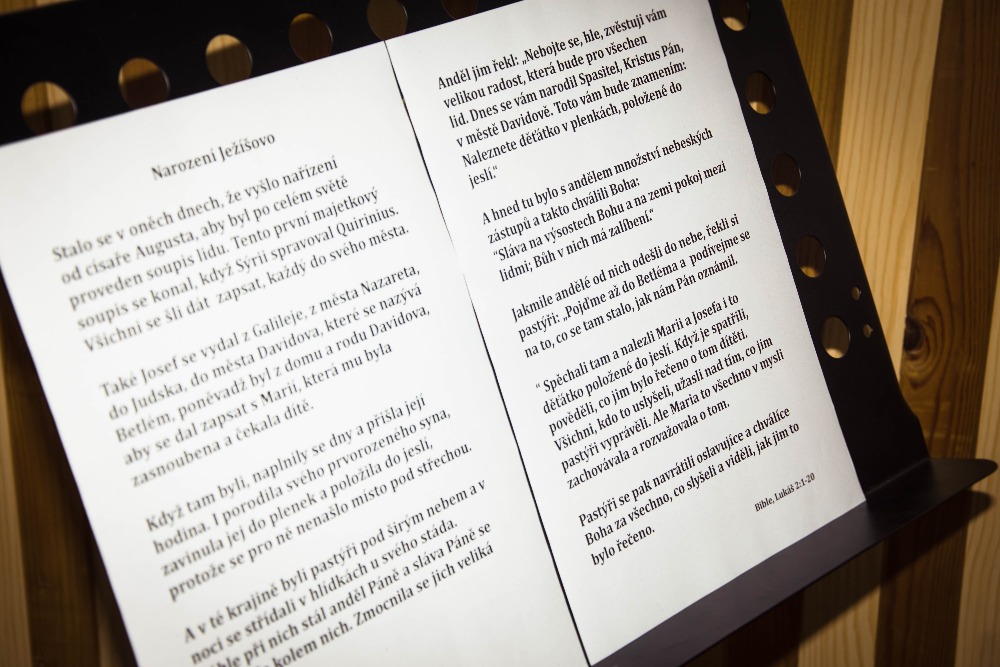 Narození Ježíšovo
Stalo se v oněch dnech, že vyšlo nařízení
od císaře Augusta, aby byl po celém světě
proveden soupis lidu. Tento první majetkový
soupis se konal, když Sýrii spravoval Quirinius.
Všichni se šli dát zapsat, každý do svého města.
Také Josef se vydal z Galileje, z města Nazareta,
do Judska, do města Davidova, které se nazývá
Betlém, poněvadž byl z domu a rodu Davidova,
aby se dal zapsat s Marií, která mu byla
zasnoubena a čekala dítě.
Když tam byli, naplnily se dny a přišla její
hodina. I porodila svého prvorozeného syna,
zavinula jej do plenek a položila do jeslí,
protože se pro ně nenašlo místo pod střechou.
A v té krajině byli pastýři pod širým nebem a v
noci se střídali v hlídkách u svého stáda.
hle při nich stál anděl Páně a sláva Páně se
kolem nich. Zmocnila se jich veliká
Anděl jim řekl: „Nebojte se, hle, zvěstuji vám
velikou radost, která bude pro všechen
lid. Dnes se vám narodil Spasitel, Kristus Pán,
v městě Davidově. Toto vám bude znamením:
Naleznete děťátko v plenkách, položené do
jeslí.“
A hned tu bylo s andělem množství nebeských
zástupů a takto chválili Boha:
“Sláva na výsostech Bohu a na zemi pokoj mezi
lidmi; Bůh v nich má zalíbení.“
Jakmile andělé od nich odešli do nebe, řekli si
pastýři: „Pojďme až do Betléma a podívejme se
na to, co se tam stalo, jak nám Pán oznámil.
“ Spěchali tam a nalezli Marii a Josefa i to
děťátko položené do jeslí. Když je spatřili,
pověděli, co jim bylo řečeno o tom dítěti.
Všichni, kdo to uslyšeli, užasli nad tím, co jim
pastýři vyprávěli. Ale Maria to všechno v mysli
zachovávala a rozvažovala o tom.
Pastýři se pak navrátili oslavujíce a chválíce
Boha za všechno, co slyšeli a viděli, jak jim to
bylo řečeno.
Bible, Lukáš 2:1-20